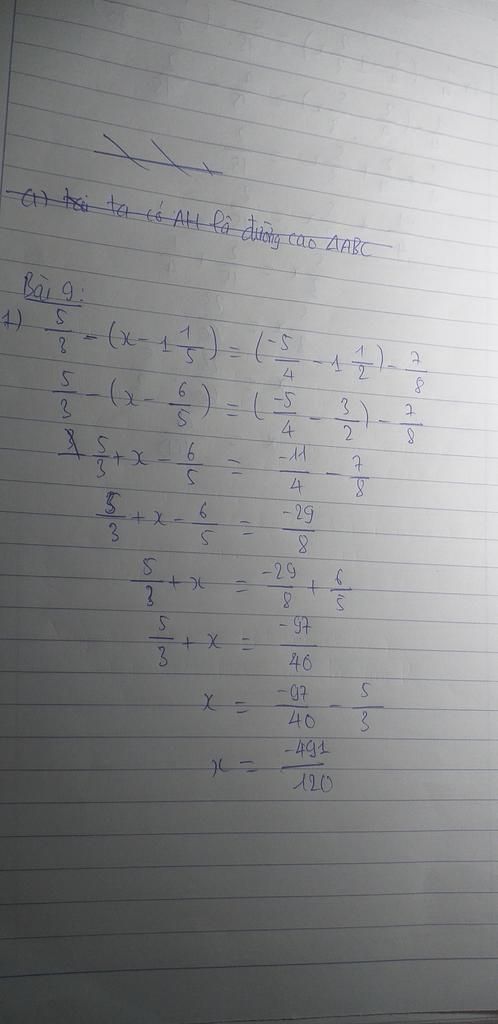 a) ta có AH là đường cao ΔABC
Bài 9:
1) 5/3 - (x - 1 1/5) = (-5/4 - 1 1/2) - 7/8
5/3 - (x - 6/5) = (-5/4 - 3/2) - 7/8
5/3 + x - 6/5 = -11/4 - 7/8
5/3 + x - 6/5 = -29/8
5/3 + x = -29/8 + 6/5
5/3 + x = -97/40
x = -97/40 - 5/3
x = -491/120